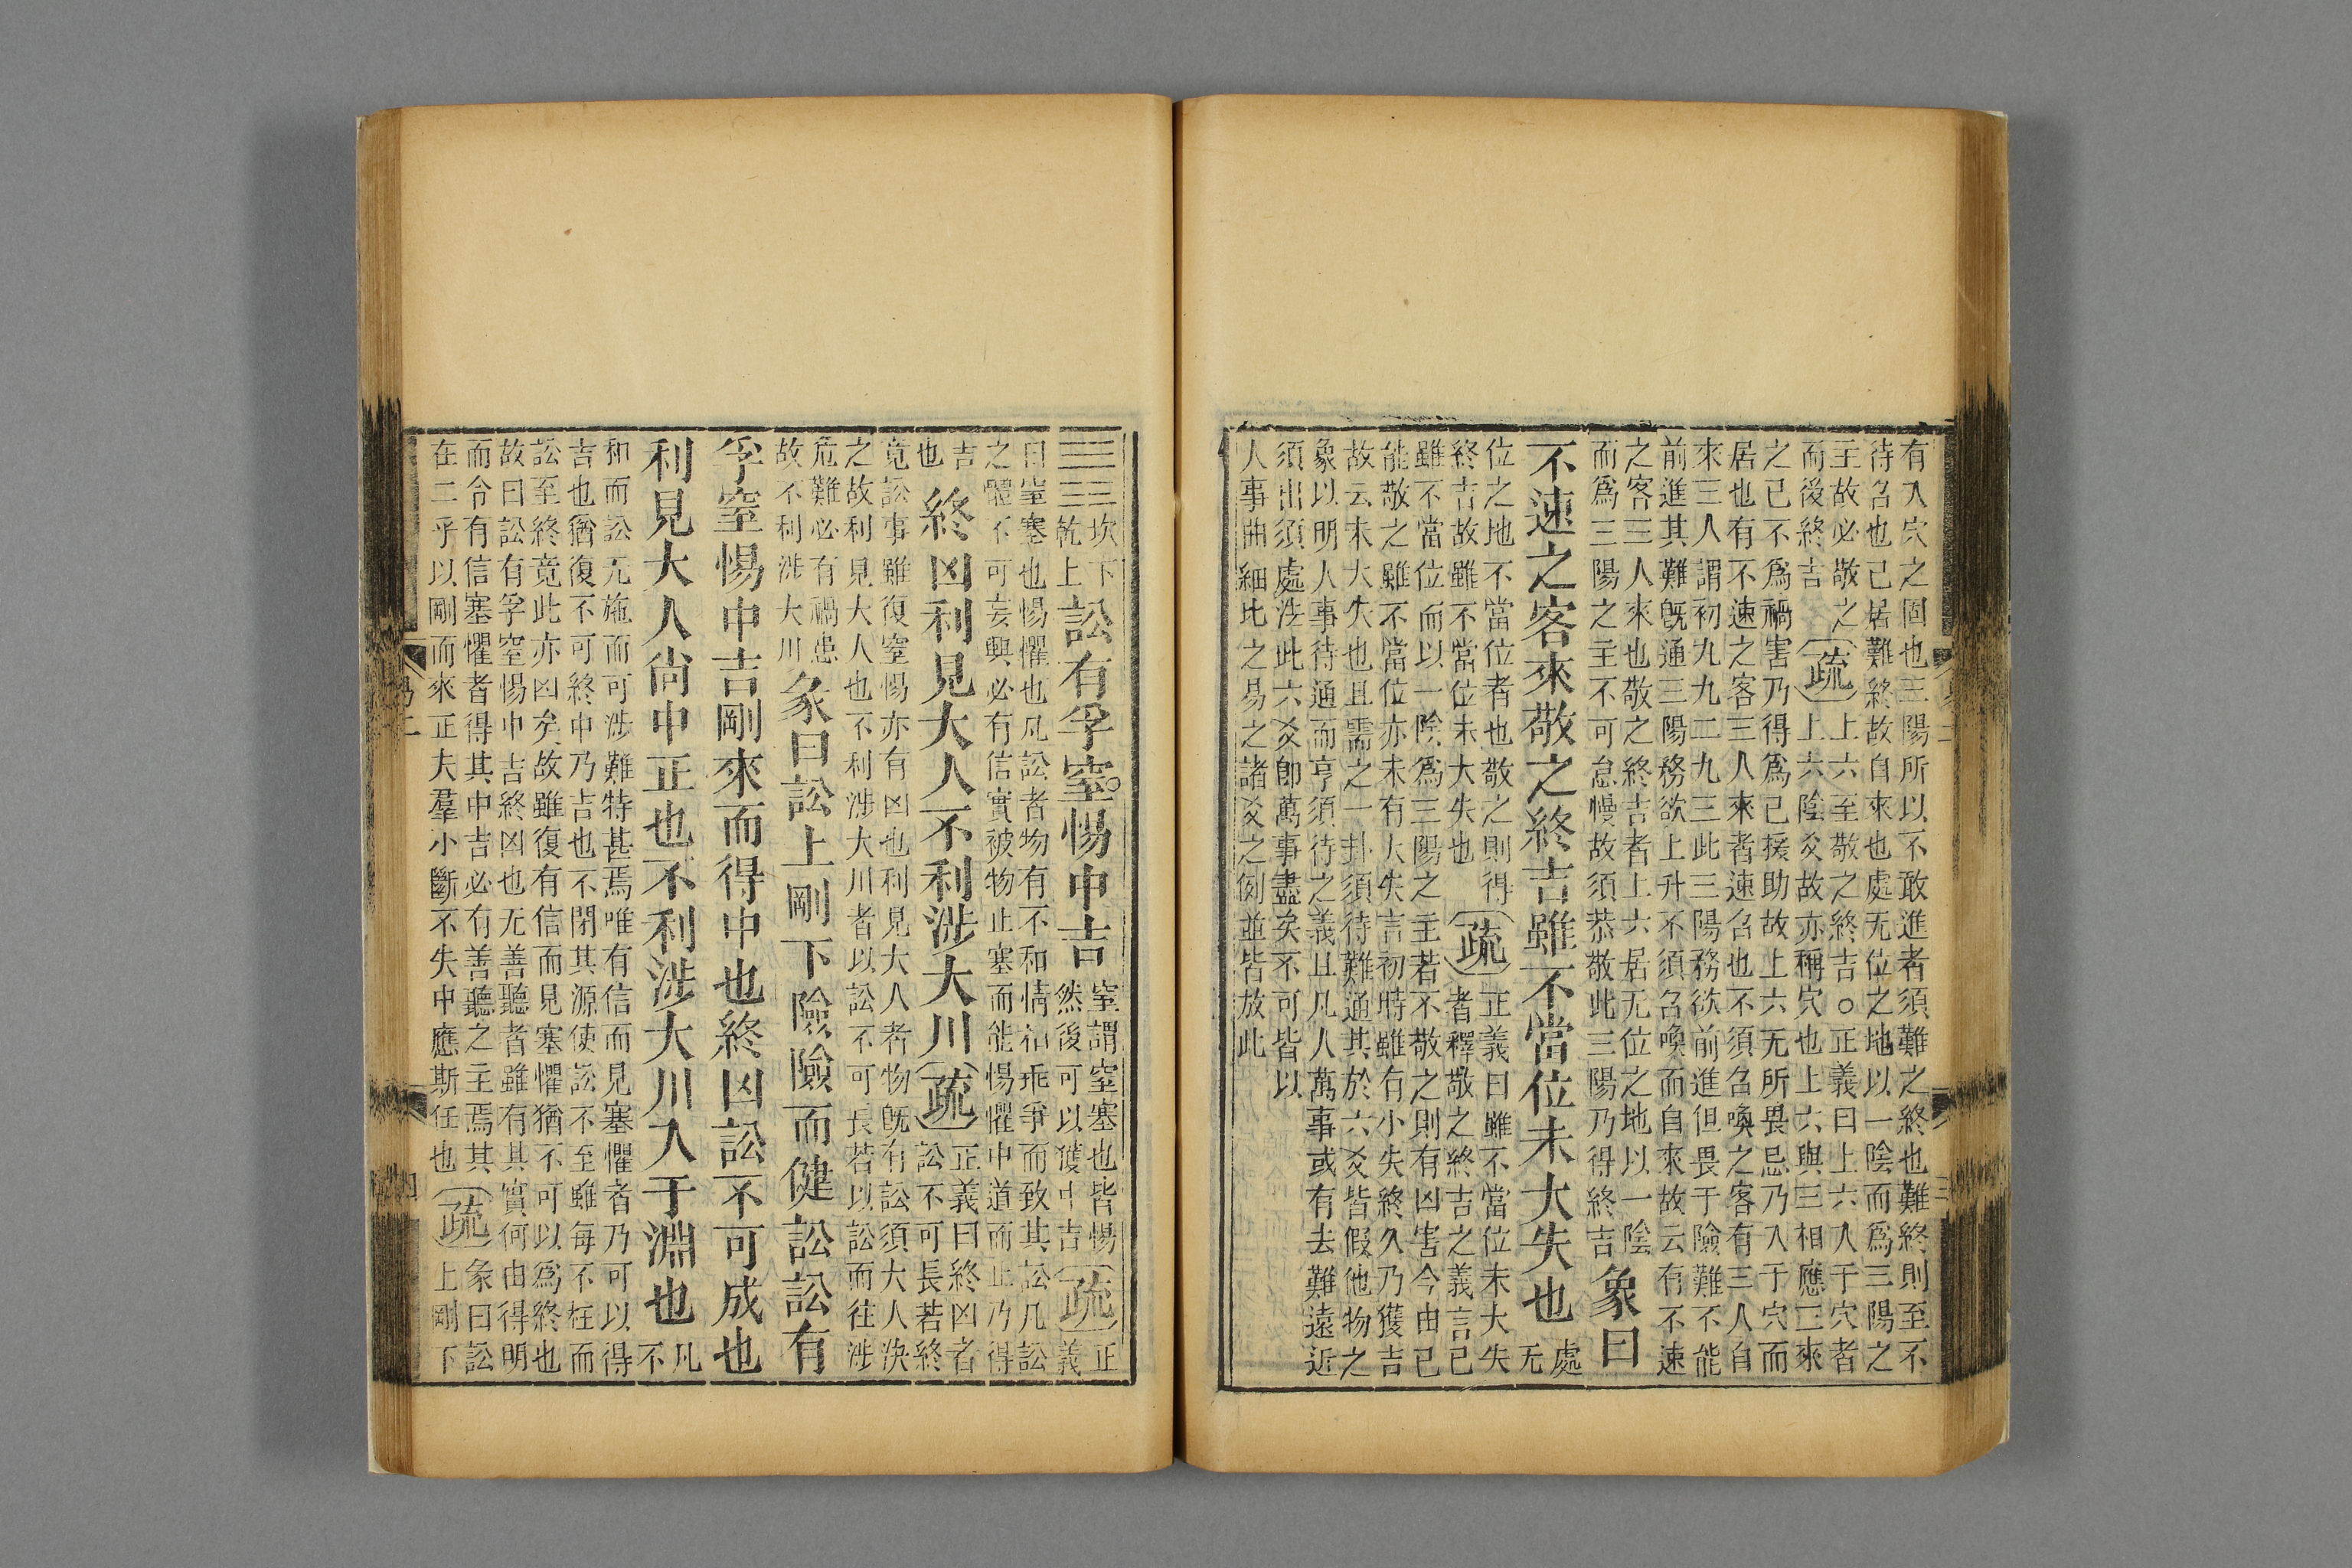 有入穴之固也三陽所以不敢進者須難之終也難終則至不
待召也己居難終故自來也處无位之地以一陰而爲三陽之
主故必敬之終吉
疏
上六至敬之終吉○正義曰上六入于穴者
而後終吉
上六陰爻故亦稱穴也上六與三相應三來
之己不爲禍害乃得爲己援助故上六无所畏忌乃入于穴而
居也有不速之客三人來者速召也不須召喚之客有三人自
來三人謂初九九二九三此三陽務欲前進但畏于險難不能
前進其難既通三陽務欲上升不須召喚而自來故云有不速
之客三人來也敬之終吉者上六居无位之地以一陰
而爲三陽之主不可怠慢故須恭敬此三陽乃得終吉
象曰
不速之客來敬之終吉雖不當位未大失也
處
无
位之地不當位者也敬之則得
終吉故雖不當位未大失也
疏
正義曰雖不當位未大失
者釋敬之終吉之義言己
雖不當位而以一陰爲三陽之主若不敬之則有凶害今由己
能敬之雖不當位亦未有大失言初時雖有小失終久乃獲吉
故云未大失也且需之一卦須待難通其於六爻皆假他物之
象以明人事待通而亨須待之義且凡人萬事或有去難遠近
須出須處法此六爻卽萬事盡矣不可皆以
人事曲細比之易之諸爻之例並皆放此
坎下
乾上
訟有孚窒惕中吉
窒謂窒塞也皆惕
然後可以獲中吉
疏
正
義
曰窒塞也惕懼也凡訟者物有不和情相乖爭而致其訟凡訟
之體不可妄興必有信實被物止塞而能惕懼中道而止乃得
吉
也
終凶利見大人不利涉大川
疏
正義曰終凶者
訟不可長若終
竟訟事雖復窒惕亦有凶也利見大人者物旣有訟須大人決
之故利見大人也不利涉大川者以訟不可長若以訟而往涉
危難必有禍患
故不利涉大川
彖曰訟上剛下險險而健訟訟有
孚窒惕中吉剛來而得中也終凶訟不可成也
利見大人尚中正也不利涉大川入于淵也
凡
不
和而訟无施而可涉難特甚焉唯有信而見塞懼者乃可以得
吉也猶復不可終中乃吉也不閉其源使訟不至雖每不枉而
訟至終竟此亦凶矣故雖復有信而見塞懼猶不可以爲終也
故曰訟有孚窒惕中吉終凶也无善聽者雖有其實何由得明
而令有信塞懼者得其中吉必有善聽之主焉其
在二乎以剛而來正夫羣小斷不失中應斯任也
疏
彖曰訟
上剛下